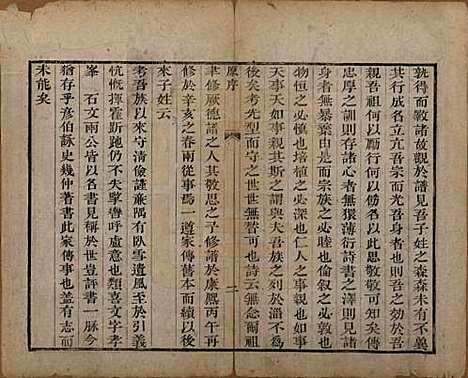 孰得而斁諸故觀於譜見吾子姓之森森未有不冀
其行成名立亢吾宗而光吾
親吾祖何以克此思敬敬可知矣傳
忠厚之訓則存諸心者無猥薄衍詩書之澤則見諸
身者無暴棄由是而宗族之必睦也倫誼之必敦也
物恒之必慎也培植之必深也仁人之事親也如事
天事天如事親其斯之謂與夫吾族之列於淄不為
後矣考先型而守之世世無替可也詩云無念爾祖
原序
二
聿修厥德諸之人其敬思之予修譜於康熙丙午再
修於辛亥之春兩從事焉一遵家傳舊本而續以後
來子姓云
考吾族以來守清儉謹廉隅有臥雪遺風至於引義
忼慨揮霍斯跑仍不失擊轡呼盧意也類喜文字孝
峯 石文兩公皆以名書見稱於世豈評書一脉今
猶存乎彥伯詠史幾仲著書此家傳事也蓋有志而
未能矣